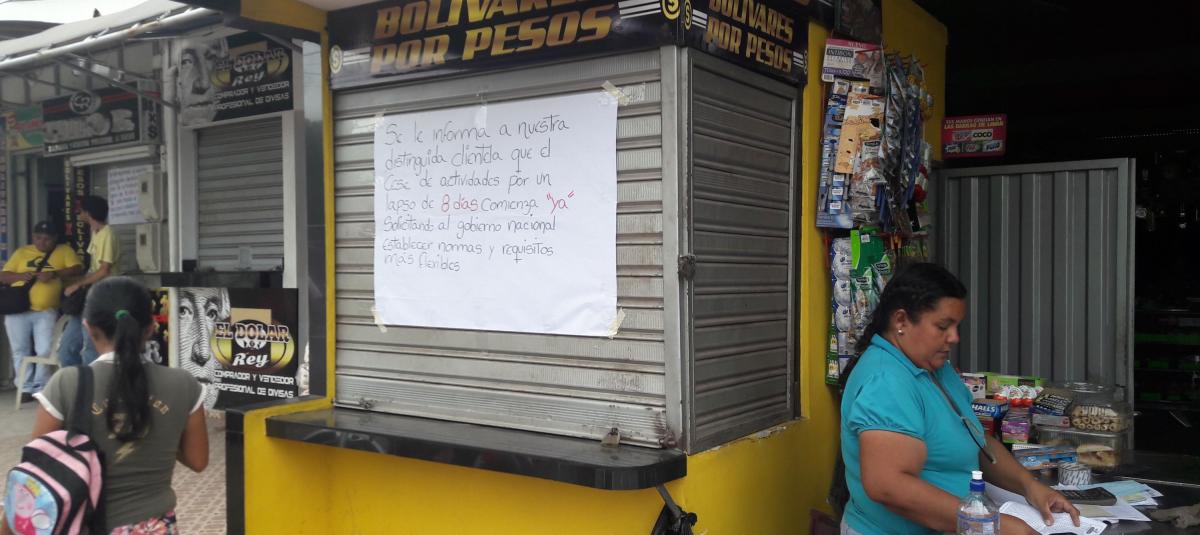 BOLIVARES
POR PESOS
BOLIVARES
POR PESOS
Se le informa a nuestra
distinguida clientela que el
Cese de actividades por un
lapso de 8 días comienza "ya"
Solicitando al gobierno nacional
establecer normas y requisitos
más flexibles
Rey
COMPRADOR Y VENDEDOR
PROFESIONAL DE DIVISAS
EL DOLAR
Rey
COMPRADOR Y VENDEDOR
PROFESIONAL DE DIVISAS
COCO
HALLS